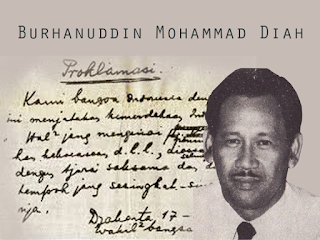 BURHANUDDIN MOHAMMAD DIAH
Proklamasi.
Kami bangsa Indonesia den
ini menjatakan kemerdekaan Ind
Hal² jang mengenai
kekoeasaan d.l.l.,
dengan tjara saksama da
tempoh jang sesingkat-si
nja.
Djakarta, 17-
Wakil² bangsa